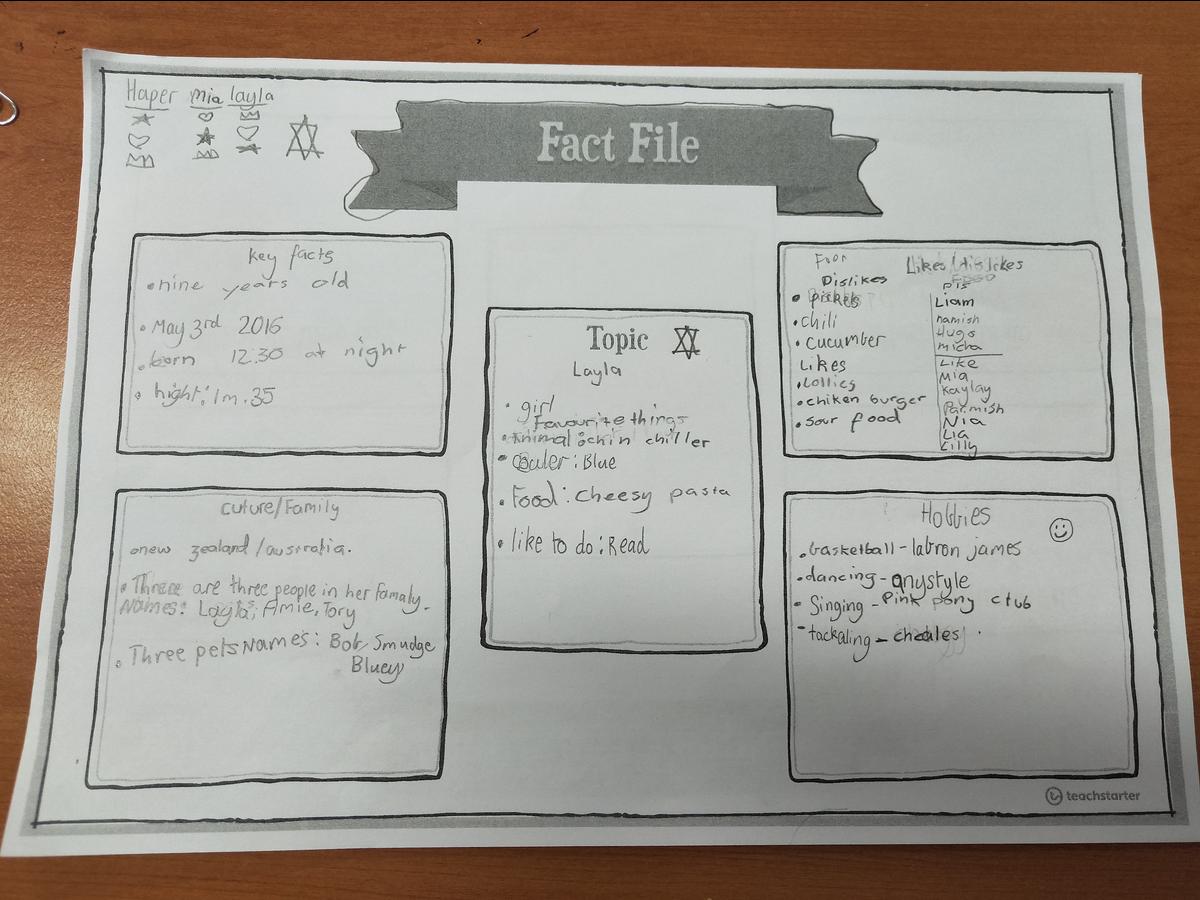 Haper mia layla
Fact File
key facts
• nine years old
• May 3rd 2016
• born 12:30 at night
• hight: 1m.35
Topic
Layla
• girl
Favourite things
• Animal: chin chiller
• Couler: Blue
• Food: Cheesy pasta
• like to do: Read
Likes/dislikes
Dislikes
• pickels
• chili
• cucumber
Likes
• Lollies
• chiken burger
• sour food
Liam
hamish
Hugo
micha
Like
Mia
Kaylay
Parmish
Nia
Lia
Lilly
cuture/Family
• new zealand/australia.
• Threre are three people in her famaly.
Names: Layla, Amie, Tory
• Three pets Names: Bob, Smudge
Bluey
Hobbies
• basketball - labron james
• dancing - anystyle
• Singing - Pink pony club
• tackaling - cheales
teachstarter